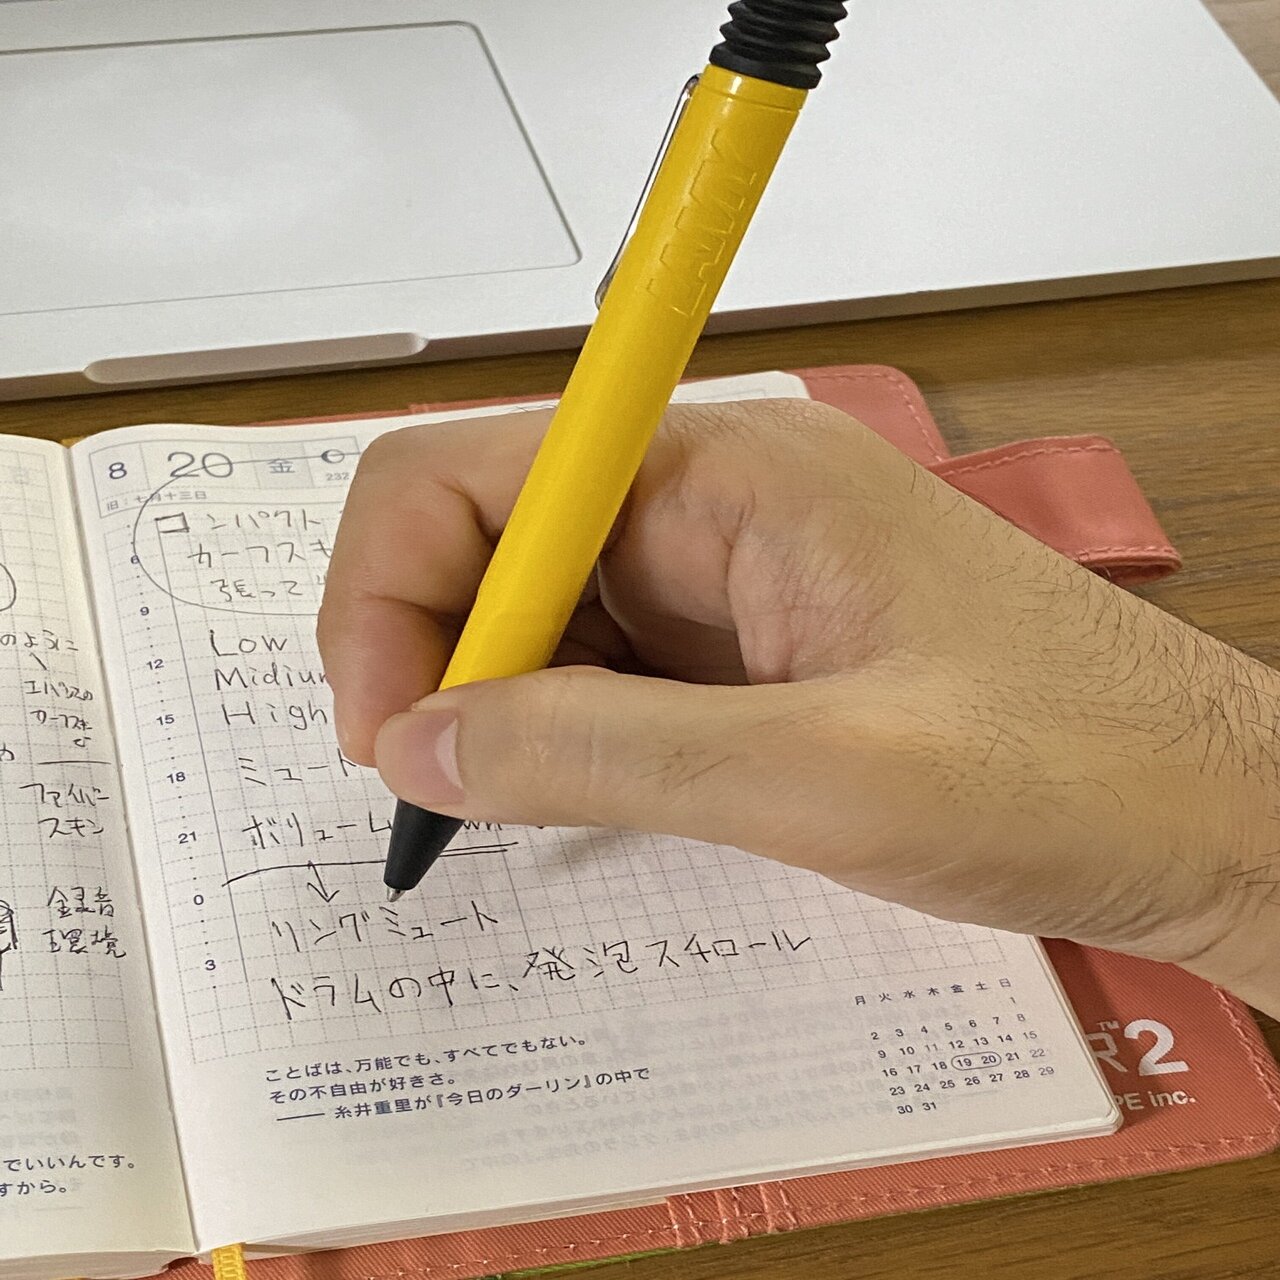 LAMY
のように
エバンスの
カーフスキ
ファイバー
スキン
録音
環境
でいいんです。
すから。
8 20 金
232
旧:七月十三日
コンパクト
カーフスキ
張って
Low
Midium
High
ミュート
ボリューム
リングミュート
ドラムの中に、発泡スチロール
6
9
12
15
18
21
0
3
ことばは、万能でも、すべてでもない。
その不自由が好きさ。
—— 糸井重里が『今日のダーリン』の中で
月 火 水 木 金 土 日
1
2 3 4 5 6 7 8
9 10 11 12 13 14 15
16 17 18 19 20 21 22
23 24 25 26 27 28 29
30 31
R™2
PE inc.